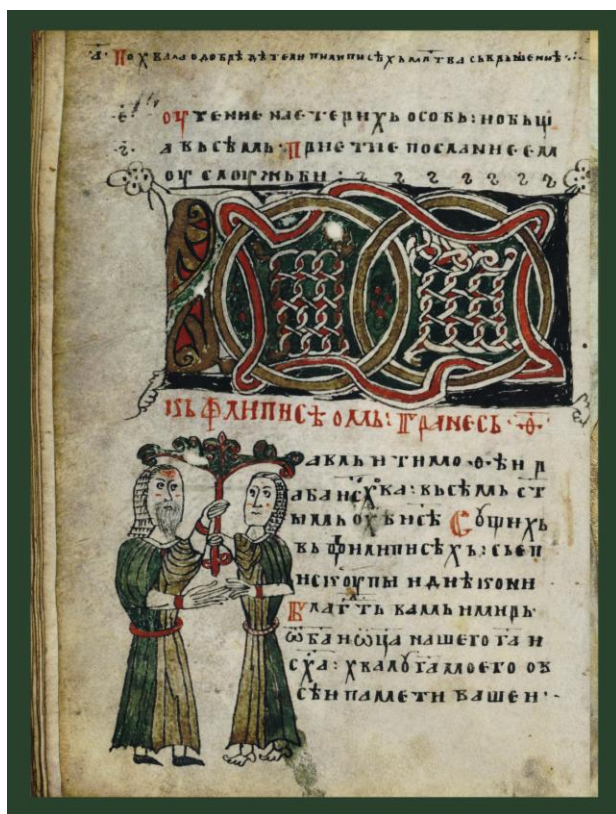 ·д· Похвала о добрѣдѣтели пилиписѣхь мл҃тва сьврьшениѣ
·е҃· оучение нѣетерихь особь: нобьщ
·ѕ҃· а вьсѣмь· Приетие посланиѣ ем
оу слоужьби :
Кь филиписѣомь: Гранесь ·ѳ҃·
авль и тимо·ѳ·ѣи р
аба ис҃у х҃ка: вьсѣмь ст
ымь о х҃ѣ исѣ Соущихь
вь филиписѣхь: сь еп
искоупы и диѣкони
Благ҃ть вамь и мирь
ѿ ба и ѿца нашего г҃а и
с х҃а: хвалу б҃га моего о в
сеи памети вашеи·